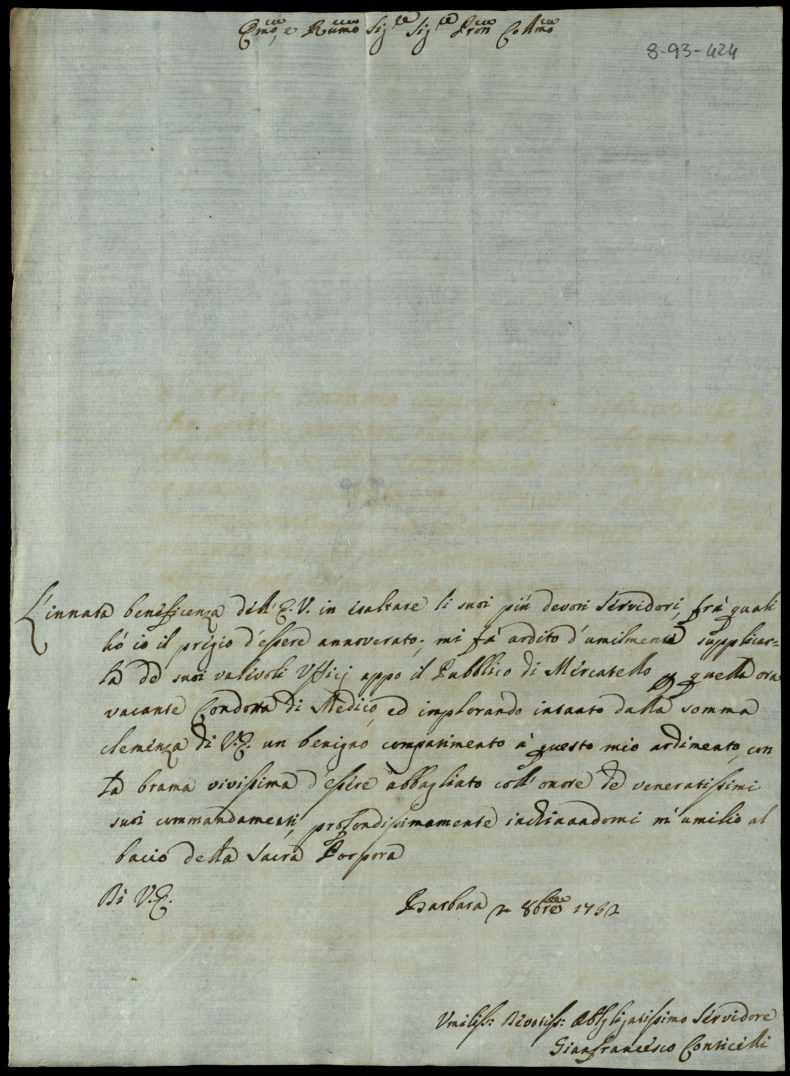 Emo, e Rmo Sig.re Sig.re Pron Collmo
8-93-424
L'innata beneficenza dell'E.V. in esaltare li suoi più devoti servidori, frà quali
hò io il pregio d'essere annoverato; mi fà ardito d'umilmente supplicar-
la de suoi valevoli Ufficj appo il Pubblico di Mercatello p quella ora
vacante Condotta di Medico, ed implorando intanto dalla somma
clemenza di V.E. un benigno compatimento à questo mio ardimento, con
la brama vivissima d'essere abbagliato coll'onore de veneratissimi
suoi commandamenti, profondissimamente inchinandomi m'umilio al
bacio della Sacra Porpora
Di V.E.
Barbara 2 8bre 1762
Umiliss: Devotiss: Obbligatissimo Servidore
Gianfrancesco Conticelli